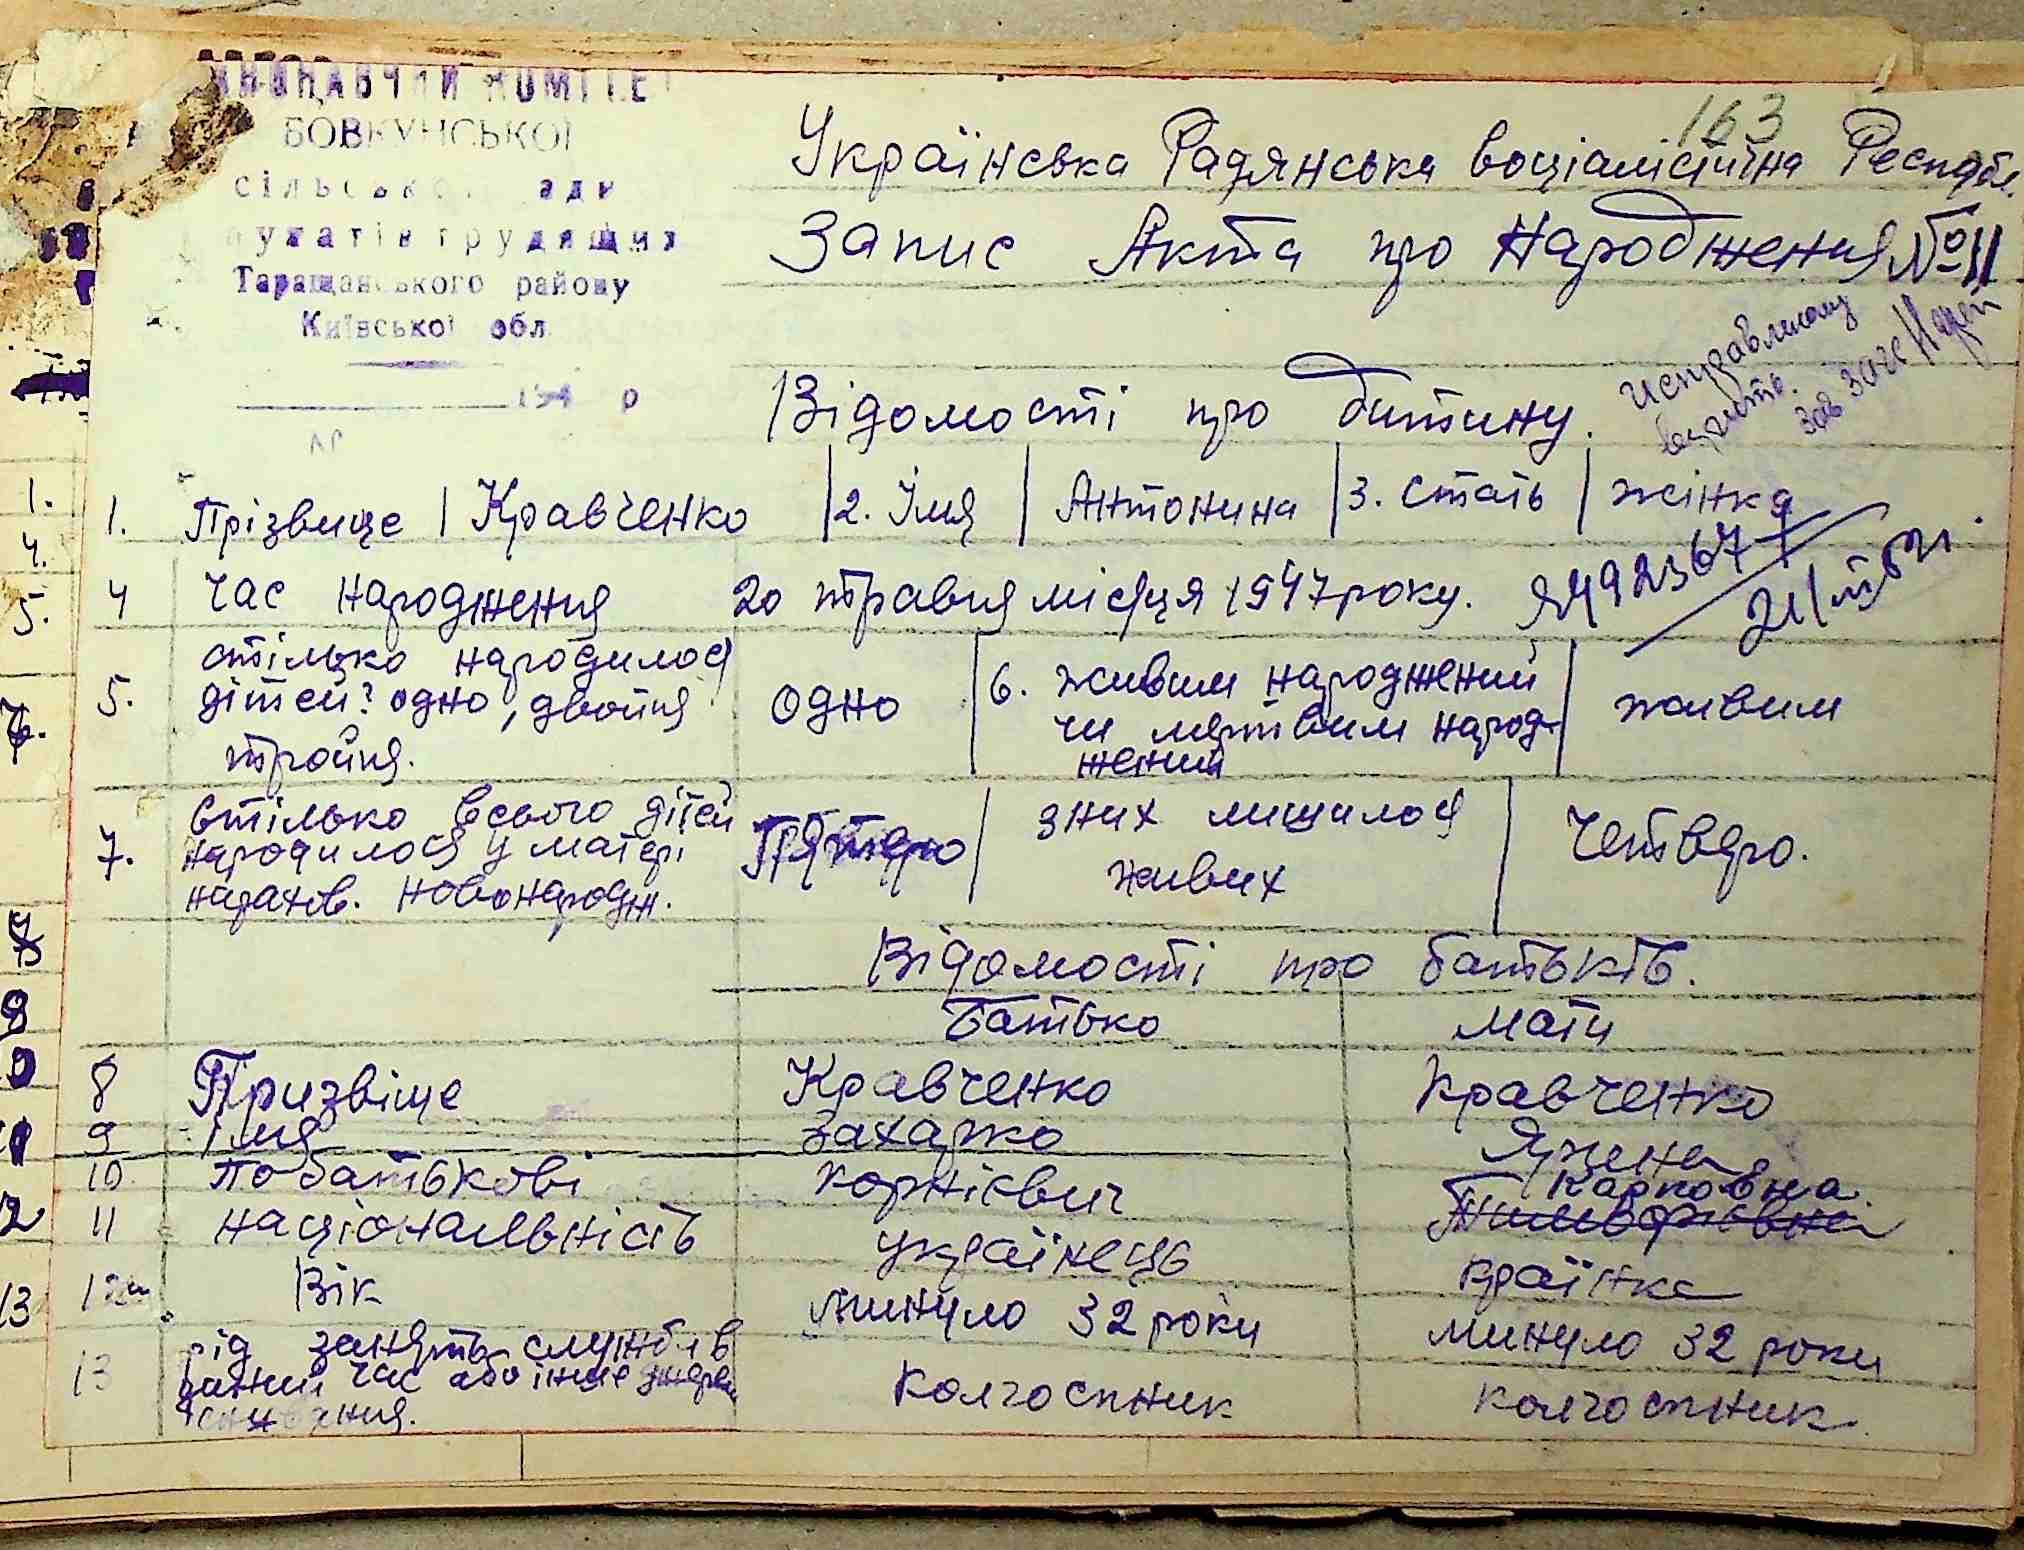 163
КОМІТЕТ
БОВКУНСЬКОЇ
Таращанського району
Київської обл
194 р
Українська Радянська Соціалістична Республ.
Запис Акта про Народження № 11
Исправленому верить.
Зав Загс
Відомості про дитину.
1. Прізвище | Кравченко | 2. Імя | Антонина | 3. стать | жінка
4 Час народження 20 травня місяця 1947 року. ЯЧ 923677
5. стілько народилося дітей? одно, двойня тройня. | одно | 6. живим народжений чи мертвим народжений | живим
7. стілько всього дітей народилося у матері нарахов. новонародж. | Пятеро | з них лишилося живих | Четверо.
Відомості про батьків.
Батько Мати
8 Призвіще Кравченко Кравченко
9 імя Захарко Ярина
10 по батькові Корнієвич Карповна
11 національність українець країнка
12 Вік минуло 32 роки минуло 32 роки
13 рід занять служби в даний час або інше існування. колгоспник колгоспник.